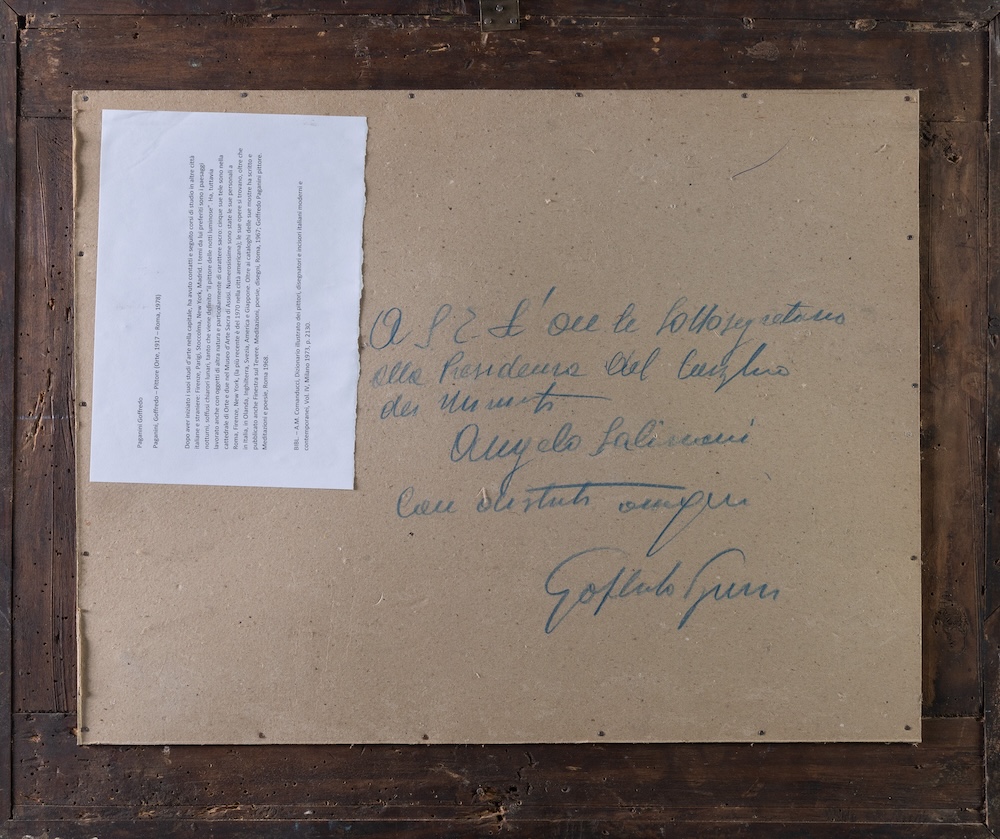 Paganini Goffredo
Paganini, Goffredo – Pittore (Orte, 1917 – Roma, 1978)
Dopo aver iniziato i suoi studi d'arte nella capitale, ha avuto contatti e seguito corsi di studio in altre città
italiane e straniere: Firenze, Parigi, Stoccolma, New York, Madrid. I temi da lui preferiti sono i paesaggi
notturni, soffusi chiarori lunari, tanto che viene definito "il pittore delle notti luminose". Ha, tuttavia
lavorato anche con oggetti di altra natura e particolarmente di carattere sacro: cinque sue tele sono nella
cattedrale di Orte e due nel Museo d'Arte Sacra di Assisi. Numerosissime sono state le sue personali a
Roma, Firenze, New York, (la più recente è del 1970 nella città americana); le sue opere si trovano, oltre che
in Italia, in Olanda, Inghilterra, Svezia, America e Giappone. Oltre ai cataloghi delle sue mostre ha scritto e
pubblicato anche Finestra sul Tevere. Meditazioni, poesie, disegni, Roma, 1967; Goffredo Paganini pittore.
Meditazioni e poesie, Roma 1968.
BIBL. – A.M. Comanducci, Dizionario illustrato dei pittori, disegnatori e incisori italiani moderni e
contemporanei, Vol. IV, Milano 1973, p. 2130.
A S E L'on le Sottosegretario
alla Presidenza del Consiglio
dei Ministri
Angelo Salizzoni
Con distinti omaggi
Goffredo